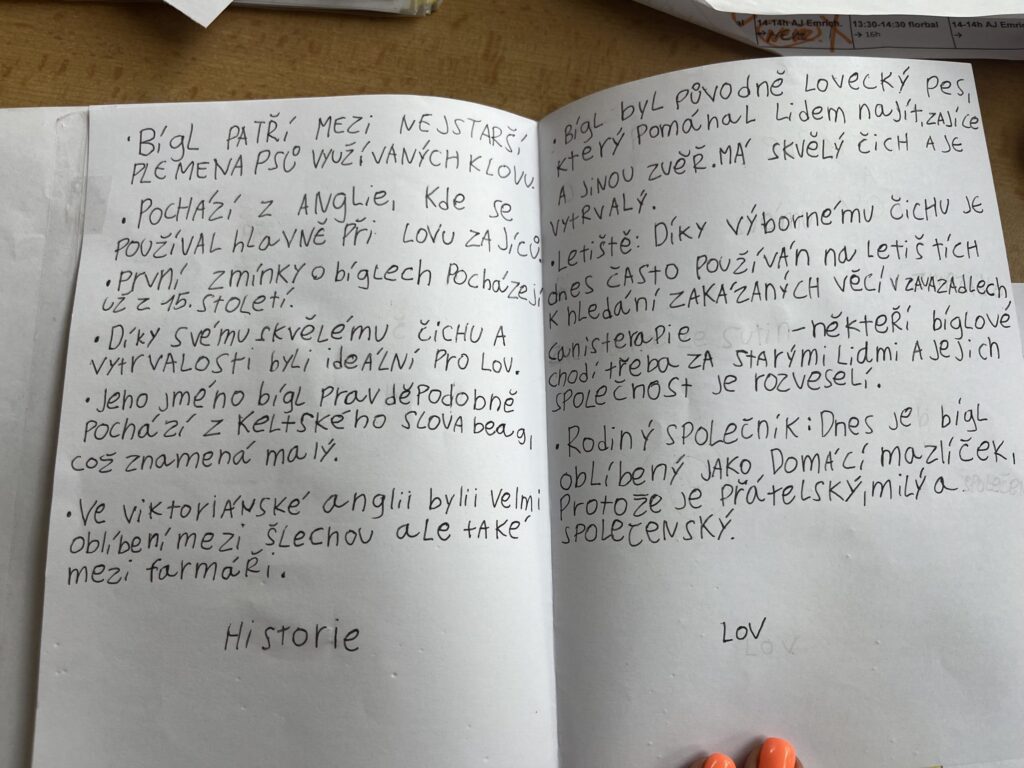 14-14h AJ Emrich.
13:30-14:30 florbal
→ 16h
14-14h AJ Emri
→
• BíGL PATŘÍ MEZI NEJSTARŠÍ
PLEMENA PSŮ VYUŽÍVANÝCH KLOVU.
• POCHÁZÍ Z ANGLIE, Kde se
POUŽÍVAL hLAVNĚ PŘi LOVU ZAJÍCŮ.
• PRVNí ZMÍNKY O bíGLECH POCHÁZEJí
UŽ Z 15. STOLETí.
• Díky SVÉMU SKVĚLÉMU ČICHU A
VYTRVALOSTI BYLI ideÁLNÍ PRO LOV.
• Jeho jméno bígl PRAVděPodobNě
POCháZí Z KELtSKÉhO SLOVA beag,
což znamená malý.
• Ve VIKTORIÁNSKÉ anglii bylii velmi
oblíbení mezi ŠLechou ale tAKé
mezi farmáři.
Historie
• Bígl byl PŮVODNĚ LOVECKÝ Pes,
který Pomáhal Lidem najít,zajíce
A JiNOU ZVĚŘ.MÁ SKVĚLÝ ČiCH A JE
VYTRVALÝ.
• Letiště: Díky VÝBORNÉMU ČiCHU JE
dnes ČASTO POUŽíVÁN na LETIŠTÍCH
K hledání ZAKÁZANÝCH VĚCÍ V ZAVAZADLECH,
Canisterapie – někteří bíglové
chodí třeba ZA STARÝMI LIDMI A JeJich
SPOLEČNOST je rozveselí.
• Rodiný SPOLEČNÍK: Dnes je bígl
oblíbený JAKO Domácí mazlíček,
Protože je Přátelský, milý a
SPOLEČENSKÝ.
LOV